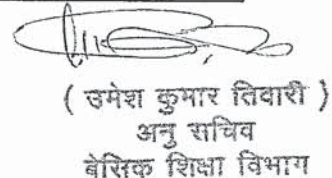 ( उमेश कुमार तिवारी )
अनु सचिव
बेसिक शिक्षा विभाग